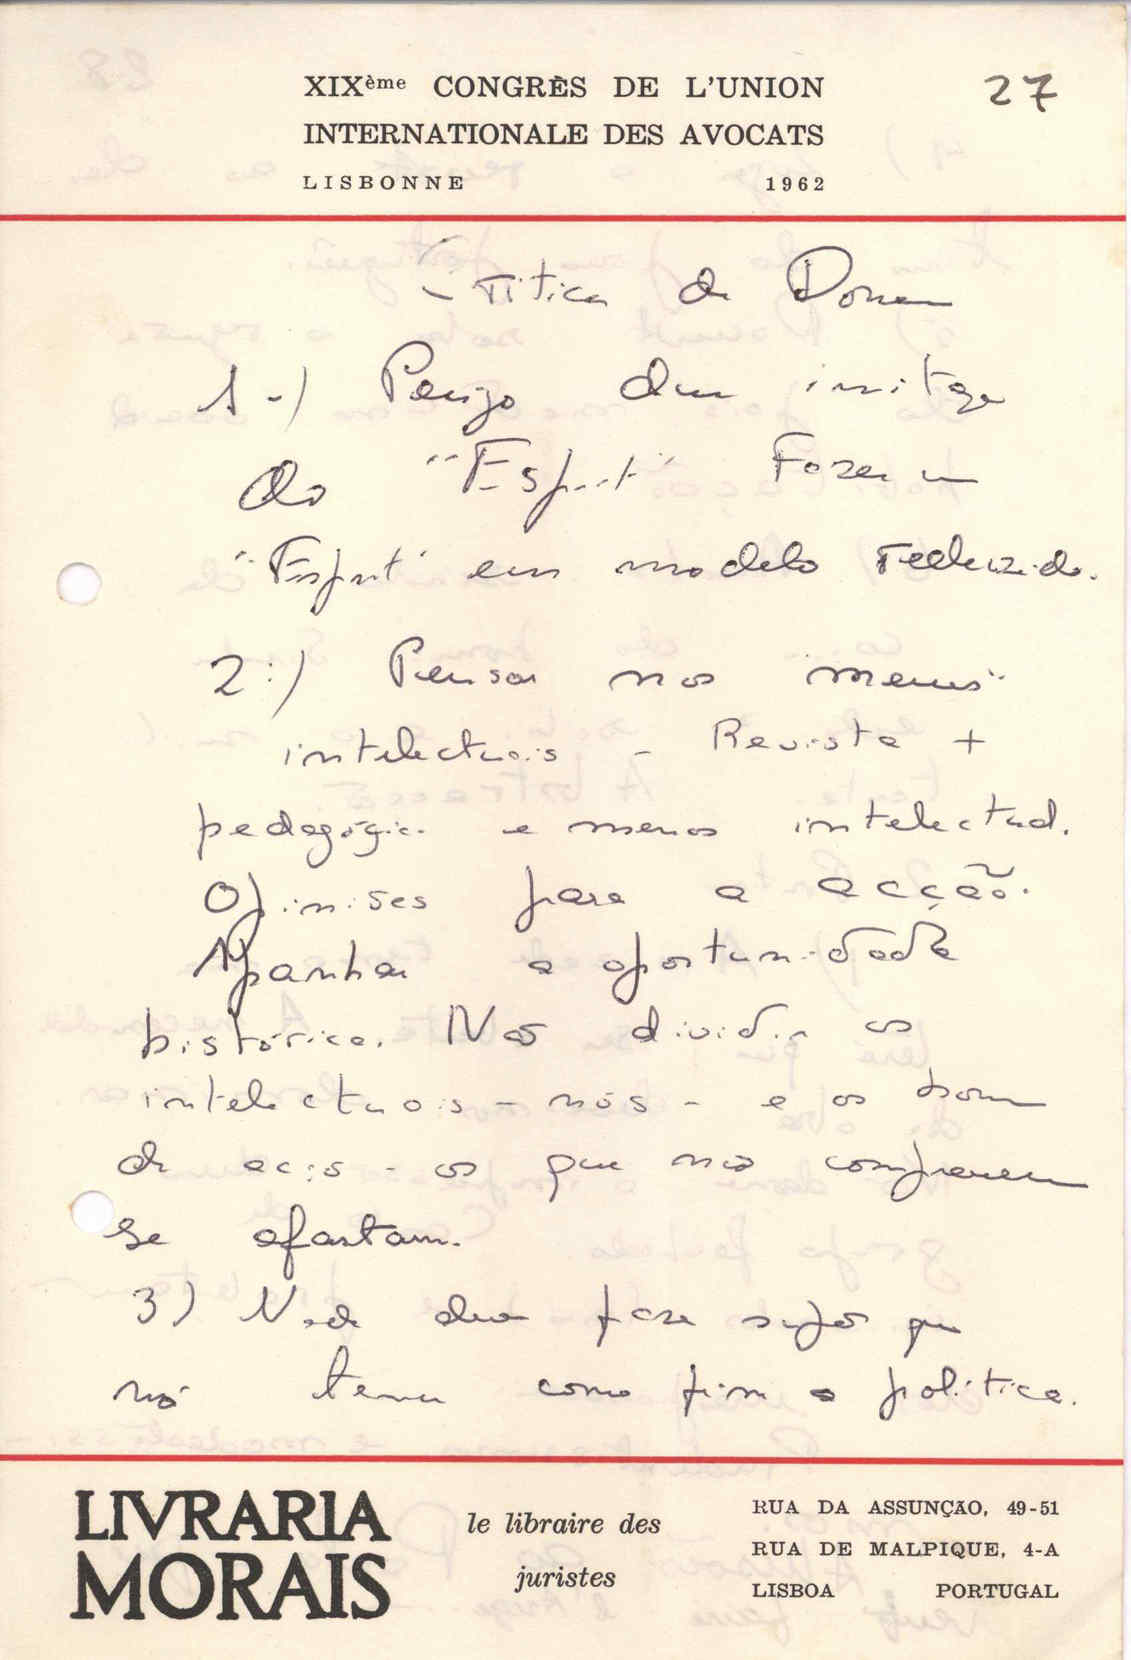 XIXème CONGRÈS DE L'UNION
27
INTERNATIONALE DES AVOCATS
LISBONNE 1962
Crítica de
1-) Perigo duma imitação
do "Esprit" Fazer um
"Esprit" em modelo reduzido.
2:) Pensar nos menos
intelectuais - Revista +
pedagógica e menos intelectual.
Opiniões para a acção.
Apanhar a oportunidade
histórica. Não dividir os
intelectuais - nós - e os homens
de acção - os que não compreendem
se afastam.
3) Nada deve fazer supor que
não temos como fim a política.
LIVRARIA
MORAIS
le libraire des
juristes
RUA DA ASSUNÇÃO, 49-51
RUA DE MALPIQUE, 4-A
LISBOA PORTUGAL